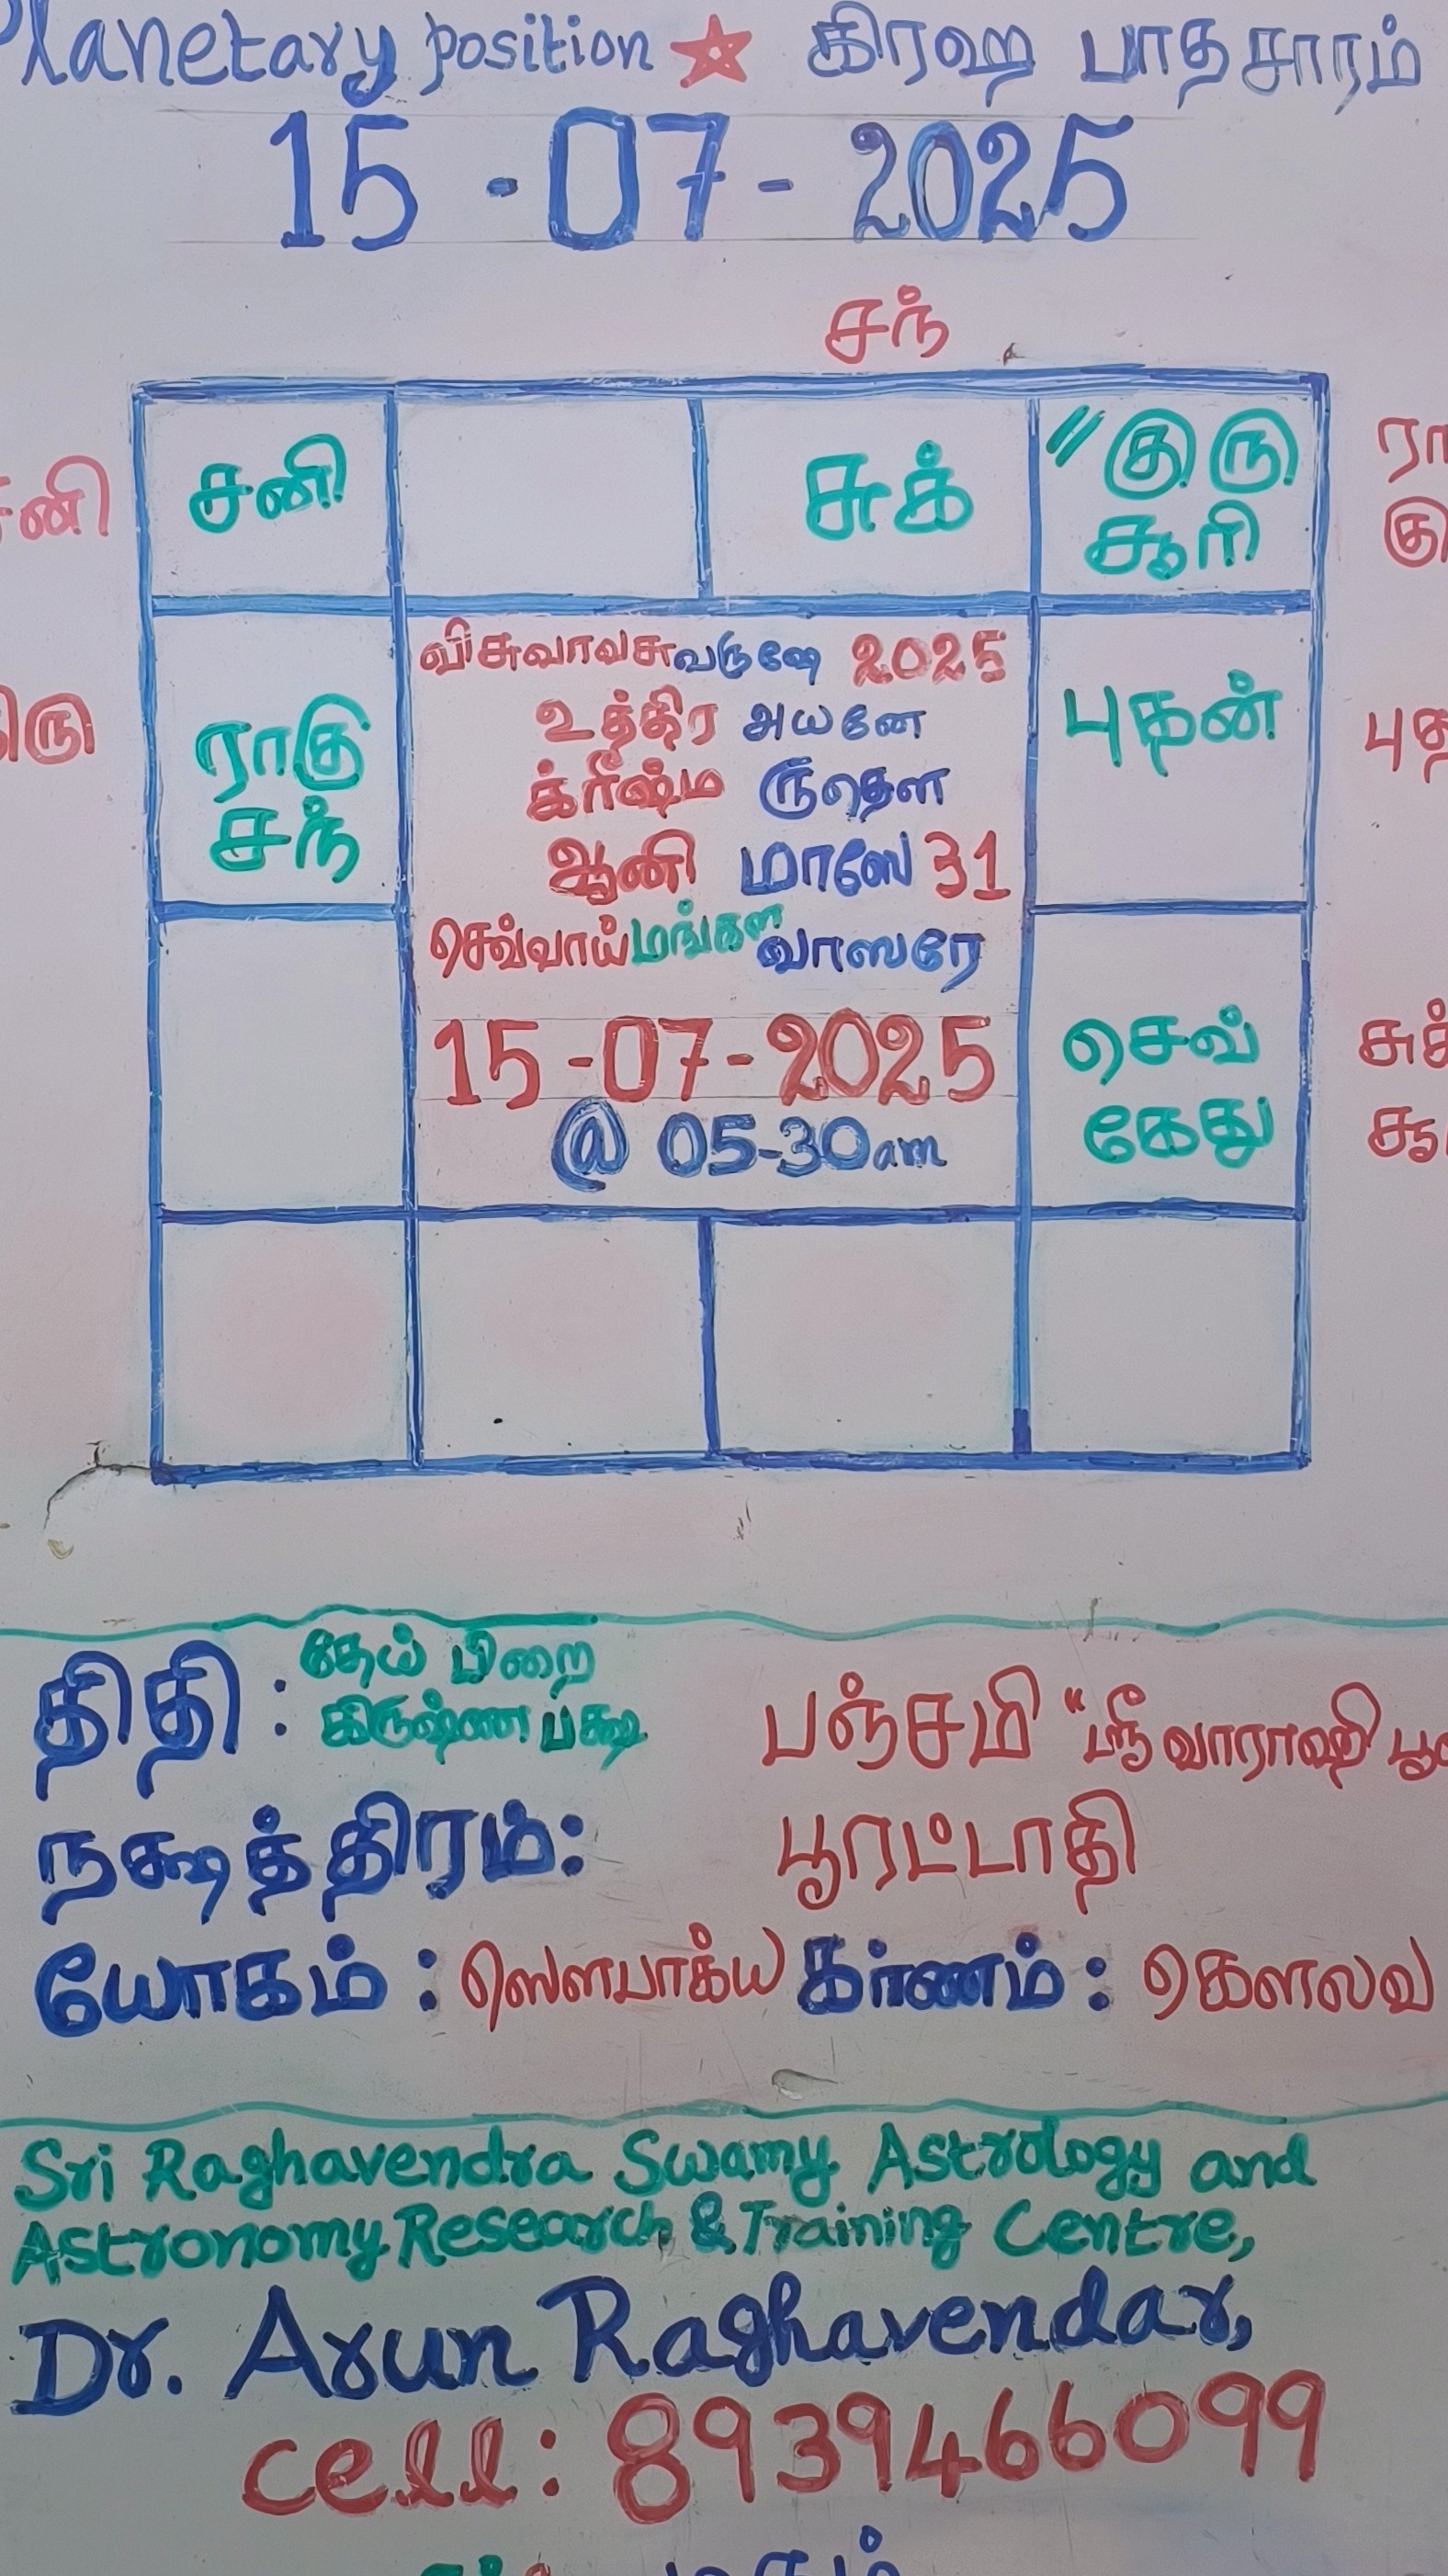 Planetary position ★ கிரஹ பாதசாரம்
15-07-2025
சந்
சனி சுக் "குரு
சூரி
விசுவாவசு வருஷே 2025
உத்திர அயனே
க்ரீஷ்ம ருதௌ
ராகு
சந்
புதன்
ஆனி மாஸே 31
செவ்வாய் மங்கள வாஸரே
15-07-2025
@ 05-30am
செவ்
கேது
திதி : தேய் பிறை
கிருஷ்ண பக்ஷ
பஞ்சமி "ஸ்ரீ வாராஹி
நக்ஷத்திரம்: பூரட்டாதி
யோகம் : ஸௌபாக்ய கர்ணம் : கௌலவ
Sri Raghavendra Swamy Astrology and
Astronomy Research & Training Centre,
Dr. Arun Raghavendar,
cell: 8939466099